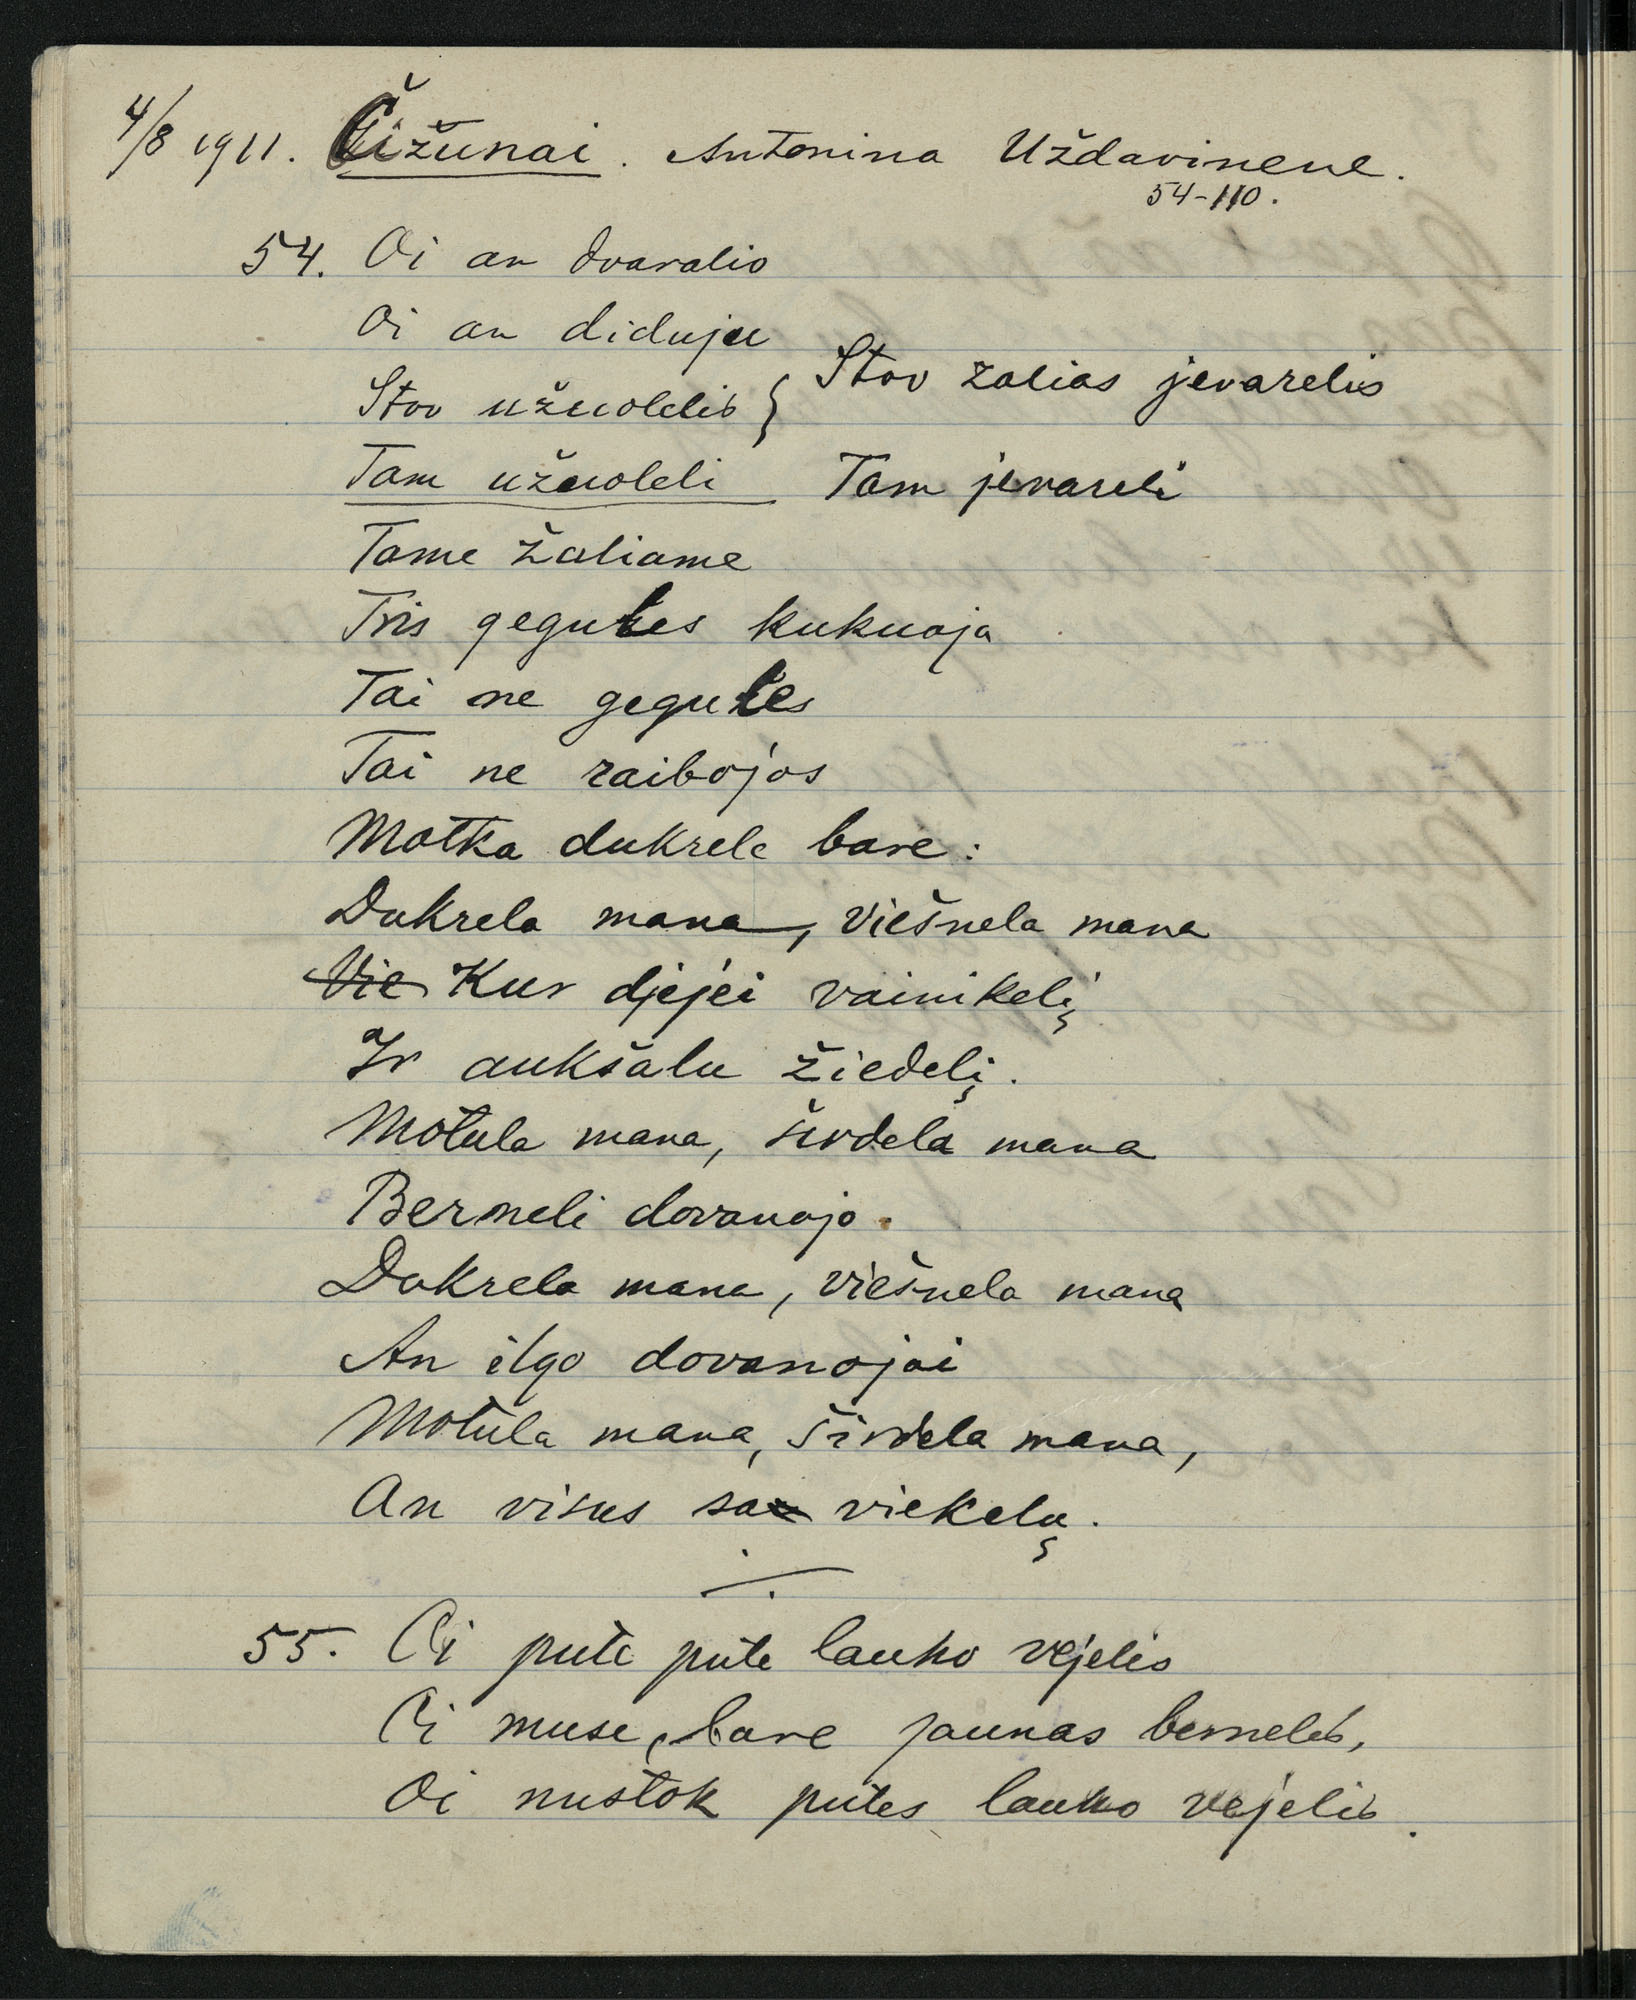 4/8 1911. Čižunai. Antonina Uždavinene.
54-110.
54. Oi an dvaralio
Oi an diduju
Stov užuolelis { Stov zalias jevarelis
Tam užuoleli Tam jevareli
Tame žaliame
Tris gegutes kukuoja
Tai ne gegutes
Tai ne raibojos
Motka dukrele bare:
Dukrela mana, viešnela mana
Vie Kur djejei vainikelį
Ir aukšalu žiedelį.
Motula mana, širdela mana
Berneli dovanojo.
Dukrela mana, viešnela mana
An ilgo dovanojai
Motula mana, širdela mana,
An visus sa viekelų.
55. Oi pute pute lauko vejelis
Oi muse, bare jaunas bernelis,
Oi nustok putes lauko vejelis.